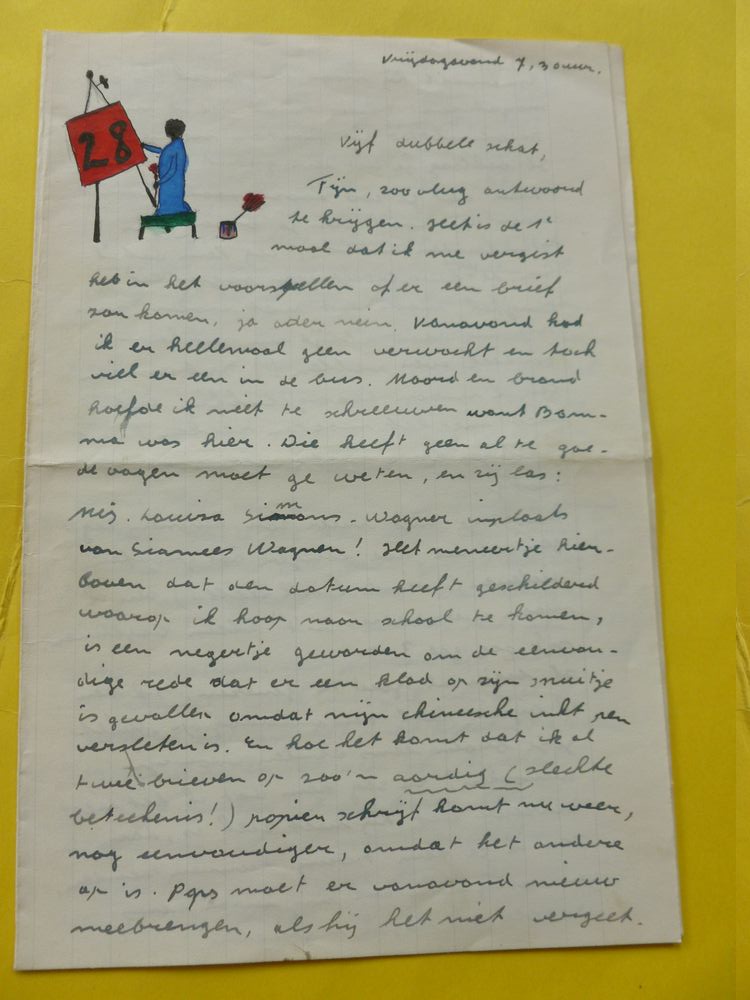 Vrijdagavond 7,30 uur.
28
Vijf dubbele schat,
Fijn, zoo vlug antwoord
te krijgen. Het is de 1e
maal dat ik me vergist
heb in het voorstellen of er een brief
zou komen, ja oder nein. Vanavond had
ik er heelemaal geen verwacht en toch
viel er een in de bus. Moord en brand
hoefde ik niet te schreeuwen want Bom-
ma was hier. Die heeft geen al te goe-
de oogen moet ge weten, en zij las:
Mej. Louisa Simons - Wagner inplaats
van Siamees Wagner! Het meneertje hier-
boven dat den datum heeft geschilderd
waarop ik hoop naar school te komen,
is een negertje geworden om de eenvou-
dige rede dat er een klad op zijn snuitje
is gevallen omdat mijn chineesche inkt pen
versleten is. En hoe het komt dat ik al
twee brieven op zoo'n aardig (slechte
beteekenis!) papier schrijf komt nu weer,
nog eenvoudiger, omdat het andere
op is. Paps moet er vanavond nieuw
meebrengen, als hij het niet vergeet.